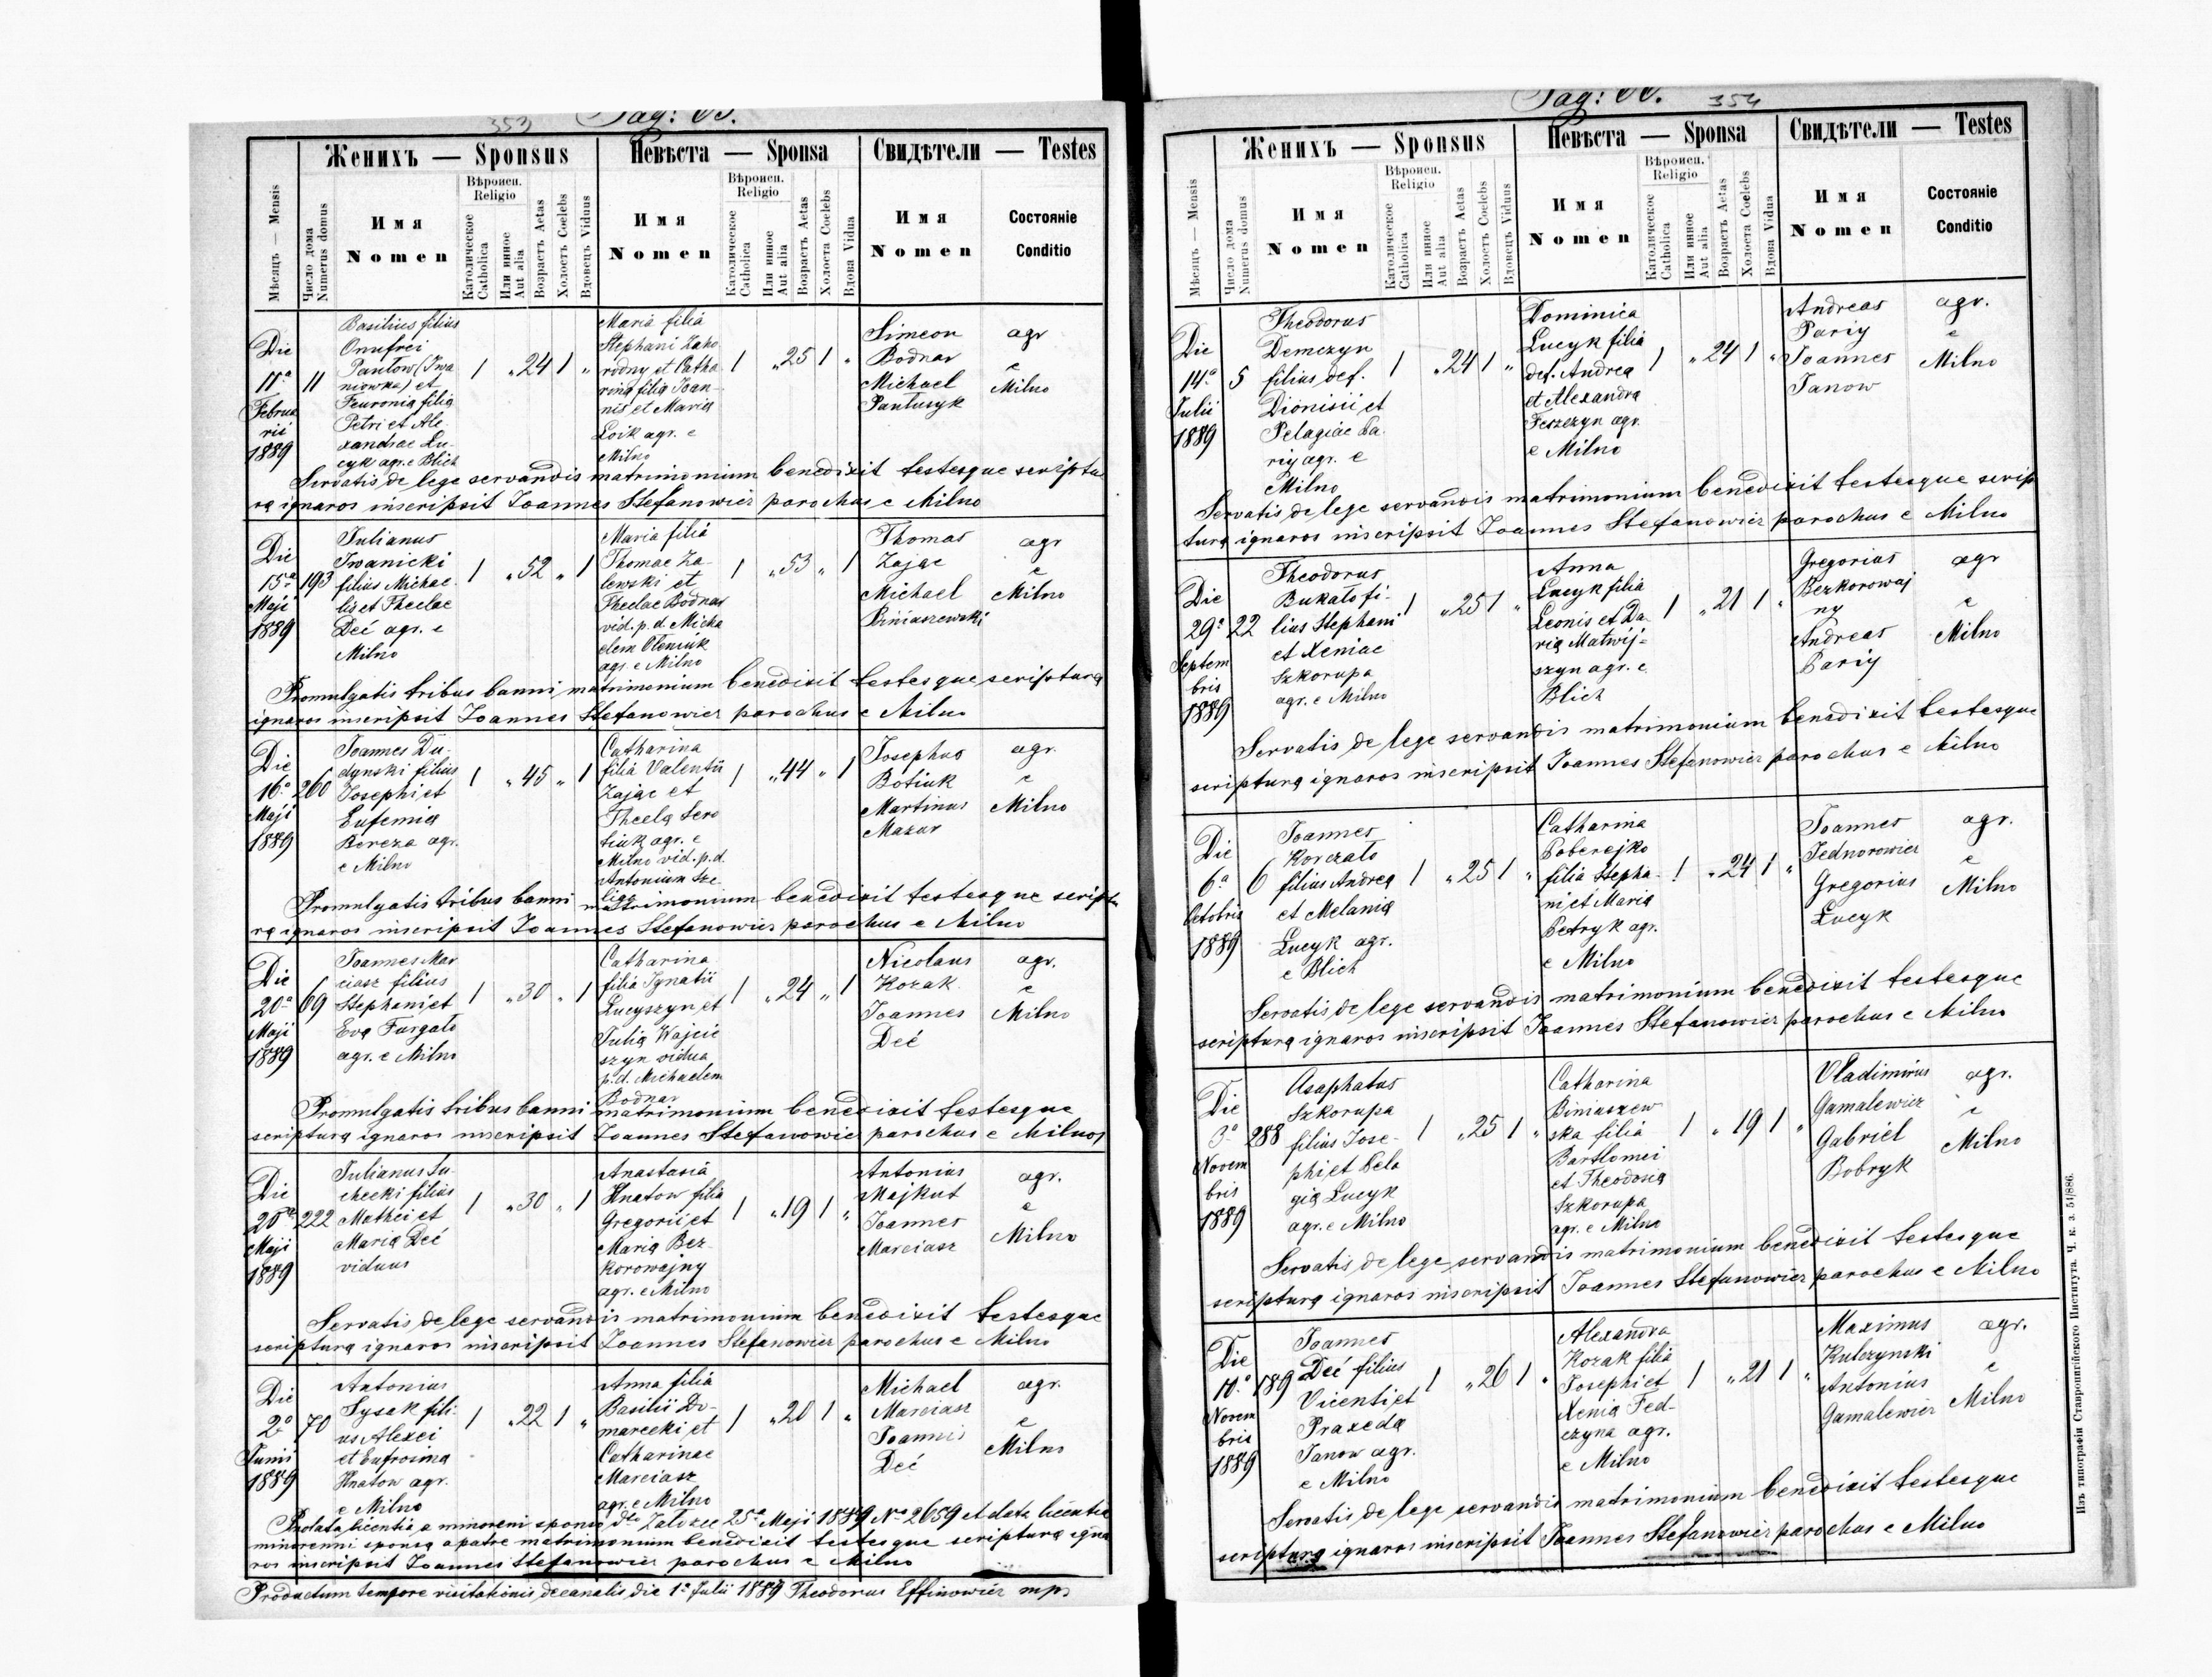 353
Pag: 65.
Женихъ — Sponsus
Невѣста — Sponsa
Свидѣтели — Testes
Мѣсяцъ — Mensis
Число дома
Numerus domus
Имя
Nomen
Вѣроисп.
Religio
Католическое
Catholica
Или инное
Aut alia
Возрастъ Aetas
Холостъ Coelebs
Вдовецъ Viduus
Имя
Nomen
Вѣроисп.
Religio
Католическое
Catholica
Или инное
Aut alia
Возрастъ Aetas
Холоста Coelebs
Вдова Vidua
Имя
Nomen
Состояніе
Conditio
Die
11ª
Februa
rii
1889
11
Basilius filius
Onufrei
Pantow (Iwa
niowka) et
Feuronią filią
Petri et Ale
xandrae Lu-
cyk agr. e Blich
1 " 24 1 "
Maria filia
Stephani Zaho
rodny et Catha
riną filią Joan-
nis et Marią
Loik agr. e
Milno
1 " 25 1 "
Simeon
Bodnar
Michael
Pantusyk
agr
e
Milno
Servatis de lege servandis matrimonium benedixit testesque scriptu
rą ignaros inscripsit Joannes Stefanowicz parochus e Milno
Die
15ª
Maji
1889
193
Julianus
Iwanicki
filius Michae-
lis et Theclae
Deć agr. e
Milno
1 " 52 " 1
Maria filia
Thomae Za-
lewski et
Theclae Bodnar
vid. p. d. Micha
elem Oleniuk
agr. e Milno
1 " 53 " 1
Thomas
Zając
Michael
Biniaszewski
agr
e
Milno
Promulgatis tribus banni matrimonium benedixit testesque scripturą
ignaros inscripsit Joannes Stefanowicz parochus e Milno
Die
16ª
Maji
1889
260
Joannes Du-
dynski filius
Josephi et
Eufemią
Bereza agr.
e Milno
1 " 45 " 1
Catharina
filia Valentii
Zając et
Theclą Sero
tiuk agr. e
Milno vid. p. d.
Antonium Sze
ligą
1 " 44 " 1
Josephus
Botiuk
Martinus
Mazur
agr.
e
Milno
Promulgatis tribus banni matrimonium benedixit testesque scriptu
rą ignaros inscripsit Joannes Stefanowicz parochus e Milno
Die
20ª
Maji
1889
69
Joannes Mar
ciasz filius
Stephani et
Evą Furgało
agr. e Milno
1 " 30 " 1
Catharina
filia Ignatii
Lucyszyn et
Julią Wajcie
szyn vidua
p. d. Michaelem
Bodnar
1 " 24 " 1
Nicolaus
Kozak
Joannes
Deć
agr.
e
Milno
Promulgatis tribus banni matrimonium benedixit testesque
scripturą ignaros inscripsit Joannes Stefanowicz parochus e Milno
Die
20ª
Maji
1889
222
Julianus Su-
checki filius
Mathei et
Marią Deć
viduus
1 " 30 " 1
Anastasia
Hnatow filia
Gregorii et
Marią Bez-
korowajny
agr. e Milno
1 " 19 1 "
Antonius
Majkut
Joannes
Marciasz
agr.
e
Milno
Servatis de lege servandis matrimonium benedixit testesque
scripturą ignaros inscripsit Joannes Stefanowicz parochus e Milno
Die
2ª
Junii
1889
70
Antonius
Sysak fili-
us Alexei
et Eufrosiną
Hnatow agr.
e Milno
1 " 22 1 "
Anna filia
Basilii Do-
marecki et
Catharinae
Marciasz
agr. e Milno
1 " 20 1 "
Michael
Marciasz
Joannis
Deć
agr.
e
Milno
Prolata licentia a minoreni sponso dto Załoźce 25ª Maji 1889 Nº 2659 et data licentia
minorenni sponsą a patre matrimonium benedixit testesque scripturą igna
ros inscripsit Joannes Stefanowicz parochus e Milno
Productum tempore visitationis decanalis die 1ª Julii 1889 Theodorus Effinowicz mp
Pag: 66.
354
Женихъ — Sponsus
Невѣста — Sponsa
Свидѣтели — Testes
Мѣсяцъ — Mensis
Число дома
Numerus domus
Имя
Nomen
Вѣроисп.
Religio
Католическое
Catholica
Или инное
Aut alia
Возрастъ Aetas
Холостъ Coelebs
Вдовецъ Viduus
Имя
Nomen
Вѣроисп.
Religio
Католическое
Catholica
Или инное
Aut alia
Возрастъ Aetas
Холоста Coelebs
Вдова Vidua
Имя
Nomen
Состояніе
Conditio
Die
14ª
Julii
1889
5
Theodorus
Demczyn
filius def.
Dionisii et
Pelagiae Pa-
riy agr. e
Milno
1 " 24 1 "
Dominica
Lucyk filia
def. Andrea
et Alexandrą
Feszczyn agr.
e Milno
1 " 24 1 "
Andreas
Pariy
Joannes
Janow
agr.
e
Milno
Servatis de lege servandis matrimonium benedixit testesque scrip
turą ignaros inscripsit Joannes Stefanowicz parochus e Milno
Die
29ª
Septem
bris
1889
22
Theodorus
Bukało fi-
lius Stephani
et Xeniae
Szkorupa
agr. e Milno
1 " 25 1 "
Anna
Lucyk filia
Leonis et Da-
rią Matwij-
szyn agr. e
Blich
1 " 21 1 "
Gregorius
Bezkorowaj
ny
Andreas
Pariy
agr
e
Milno
Servatis de lege servandis matrimonium benedixit testesque
scripturą ignaros inscripsit Joannes Stefanowicz parochus e Milno
Die
6ª
Octobris
1889
6
Joannes
Korzato
filius Andreą
et Melanią
Lucyk agr.
e Blich
1 " 25 1 "
Catharina
Poberejko
filia Stepha-
ni et Marią
Petryk agr.
e Milno
1 " 24 1 "
Joannes
Jednorowicz
Gregorius
Lucyk
agr.
e
Milno
Servatis de lege servandis matrimonium benedixit testesque
scripturą ignaros inscripsit Joannes Stefanowicz parochus e Milno
Die
3ª
Novem
bris
1889
288
Asaphatus
Szkorupa
filius Jose-
phi et Pela
gią Lucyk
agr. e Milno
1 " 25 1 "
Catharina
Biniaszew
ska filia
Bartlomei
et Theodosią
Szkorupa
agr. e Milno
1 " 19 1 "
Vladimirus
Gamalewicz
Gabriel
Bobryk
agr.
e
Milno
Servatis de lege servandis matrimonium benedixit testesque
scripturą ignaros inscripsit Joannes Stefanowicz parochus e Milno
Die
10ª
Novem
bris
1889
189
Joannes
Deć filius
Vicenti et
Praxedą
Janow agr.
e Milno
1 " 26 1 "
Alexandra
Kozak filia
Josephi et
Xenią Fed-
czyna agr.
e Milno
1 " 21 1 "
Maximus
Kulczynski
Antonius
Gamalewicz
agr.
e
Milno
Servatis de lege servandis matrimonium benedixit testesque
scripturą ignaros inscripsit Joannes Stefanowicz parochus e Milno
Изъ типографіи Ставропигійского Института. Ч. к. з. 54/886.